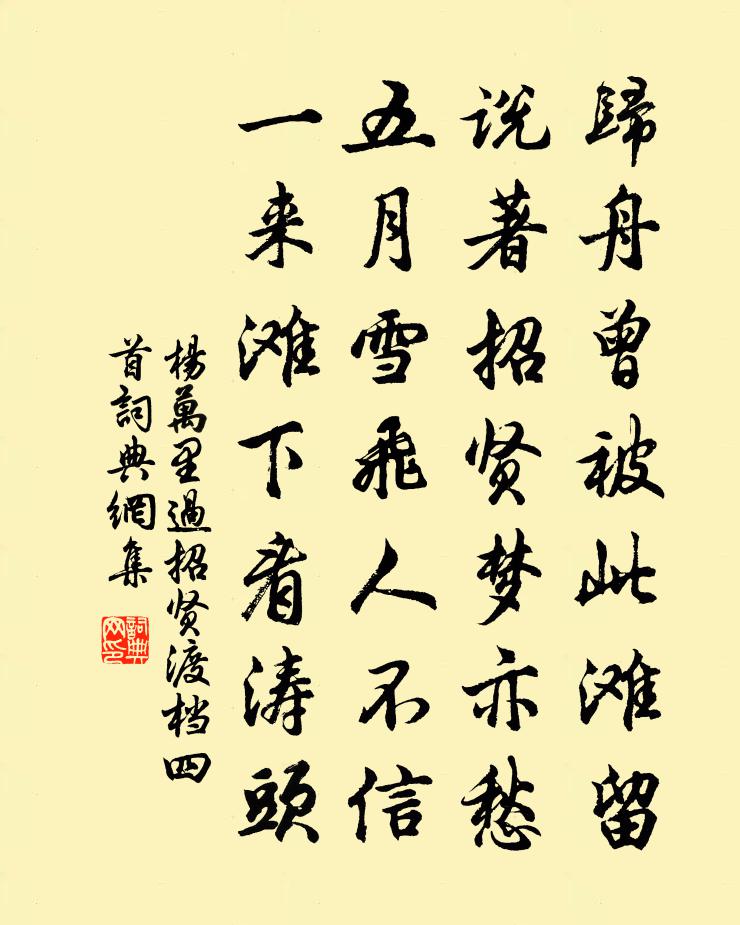 歸舟曾被此滩留
说著招贤梦亦愁
五月雪飛人不信
一来滩下看涛頭
楊萬里過招贤渡档四
首詞典網集
詞典
网印